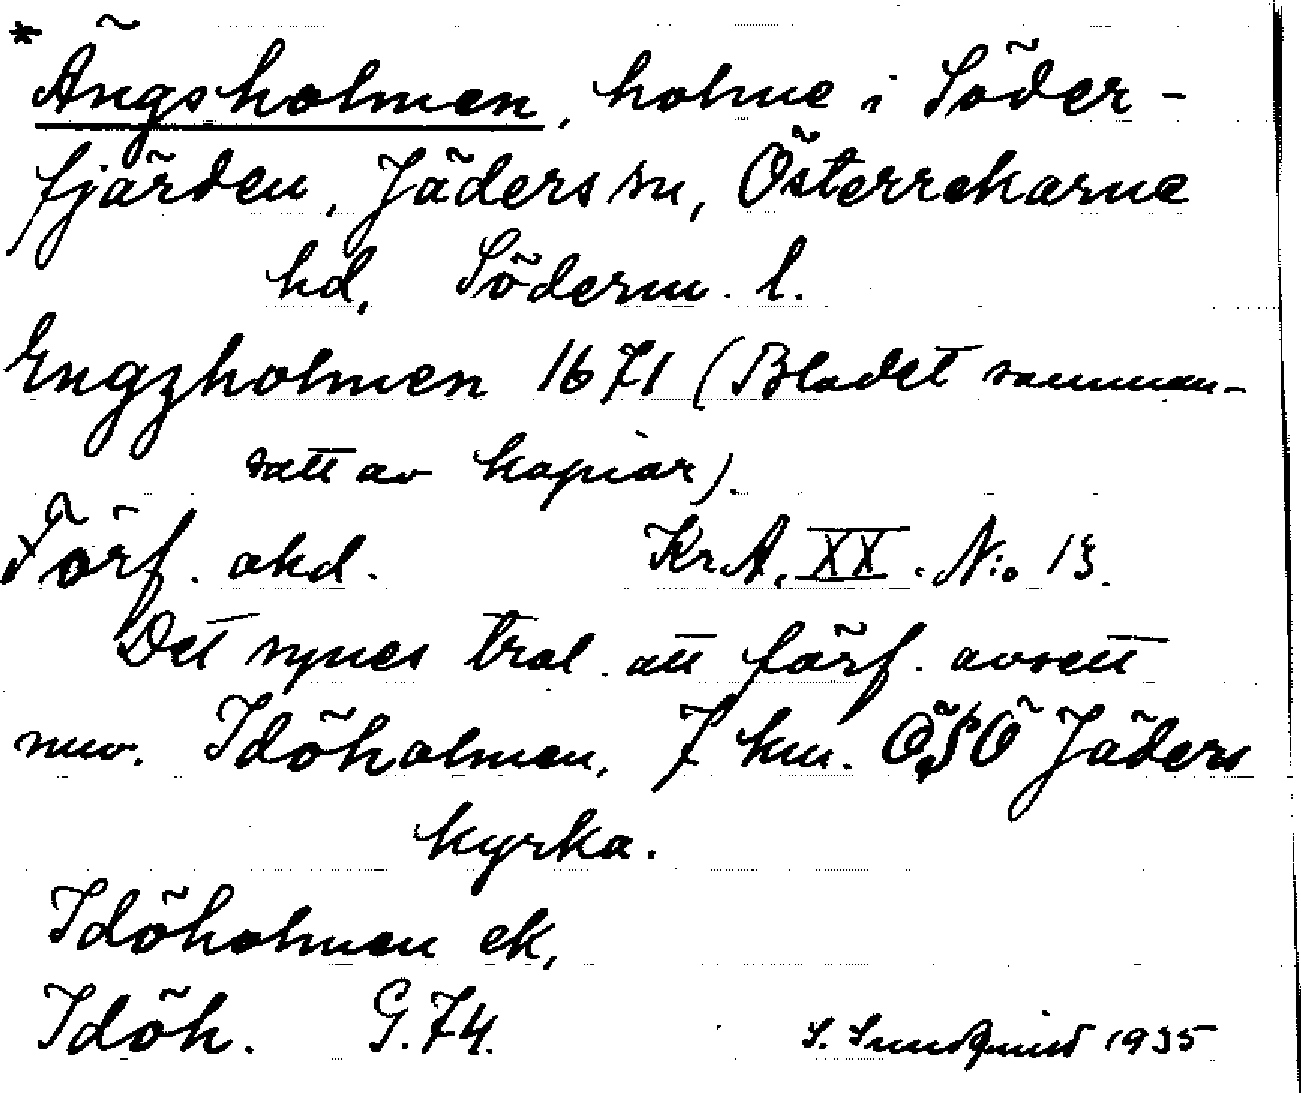 * Ängsholmen, holme i Söder-
fjärden, Jäders sn, Österrekarne
hd, Söderm. l.
Engzholmen 1671 (Bladet samman-
satt av kopior).
Förf. okd. Kr.A. XX. N:o 13.
Det synes trol. att förf. avsett
nuv. Idöholmen, 7 km. ÖSÖ Jäders
kyrka.
Idöholmen ek,
Idöh. G.74. S. Sundquist 1935